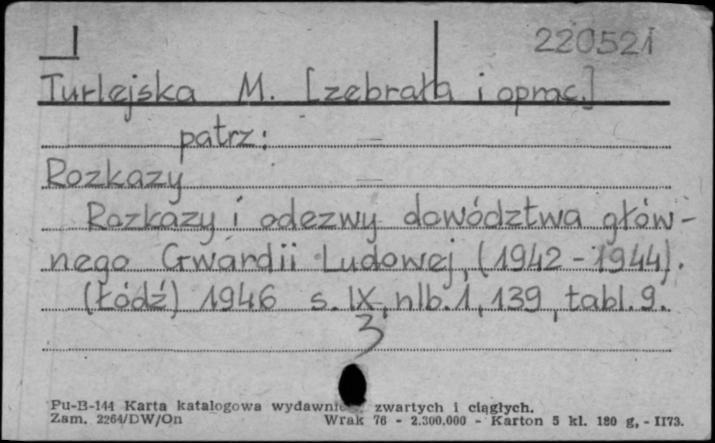 220521
Turlejska M. [zebrała i oprac.]
patrz:
Rozkazy
Rozkazy i odezwy dowództwa głów-
nego Gwardii Ludowej, (1942-1944).
(Łódź) 1946 s. IX, nlb. 1, 139, tabl. 9.
3
Pu-B-144 Karta katalogowa wydawnictw zwartych i ciągłych.
Zam. 2264/DW/On Wrak 76 - 2.300.000 - Karton 5 kl. 180 g, - II73.